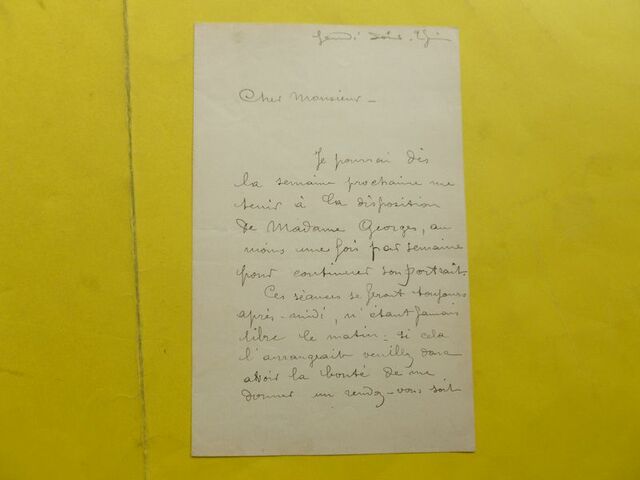 Jeudi soir.
Cher Monsieur _
Je pourrai dès
la semaine prochaine me
tenir à la disposition
de Madame Georges, au
moins une fois par semaine
pour continuer son portrait.
Ces séances se feront toujours
après-midi, n'étant jamais
libre le matin. si cela
l'arrangeait veuillez donc
avoir la bonté de me
donner un rendez-vous soit